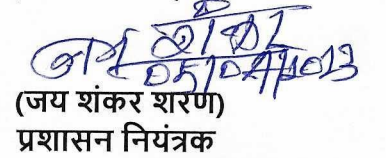 जय शंकर
05/04/2013
(जय शंकर शरण)
प्रशासन नियंत्रक